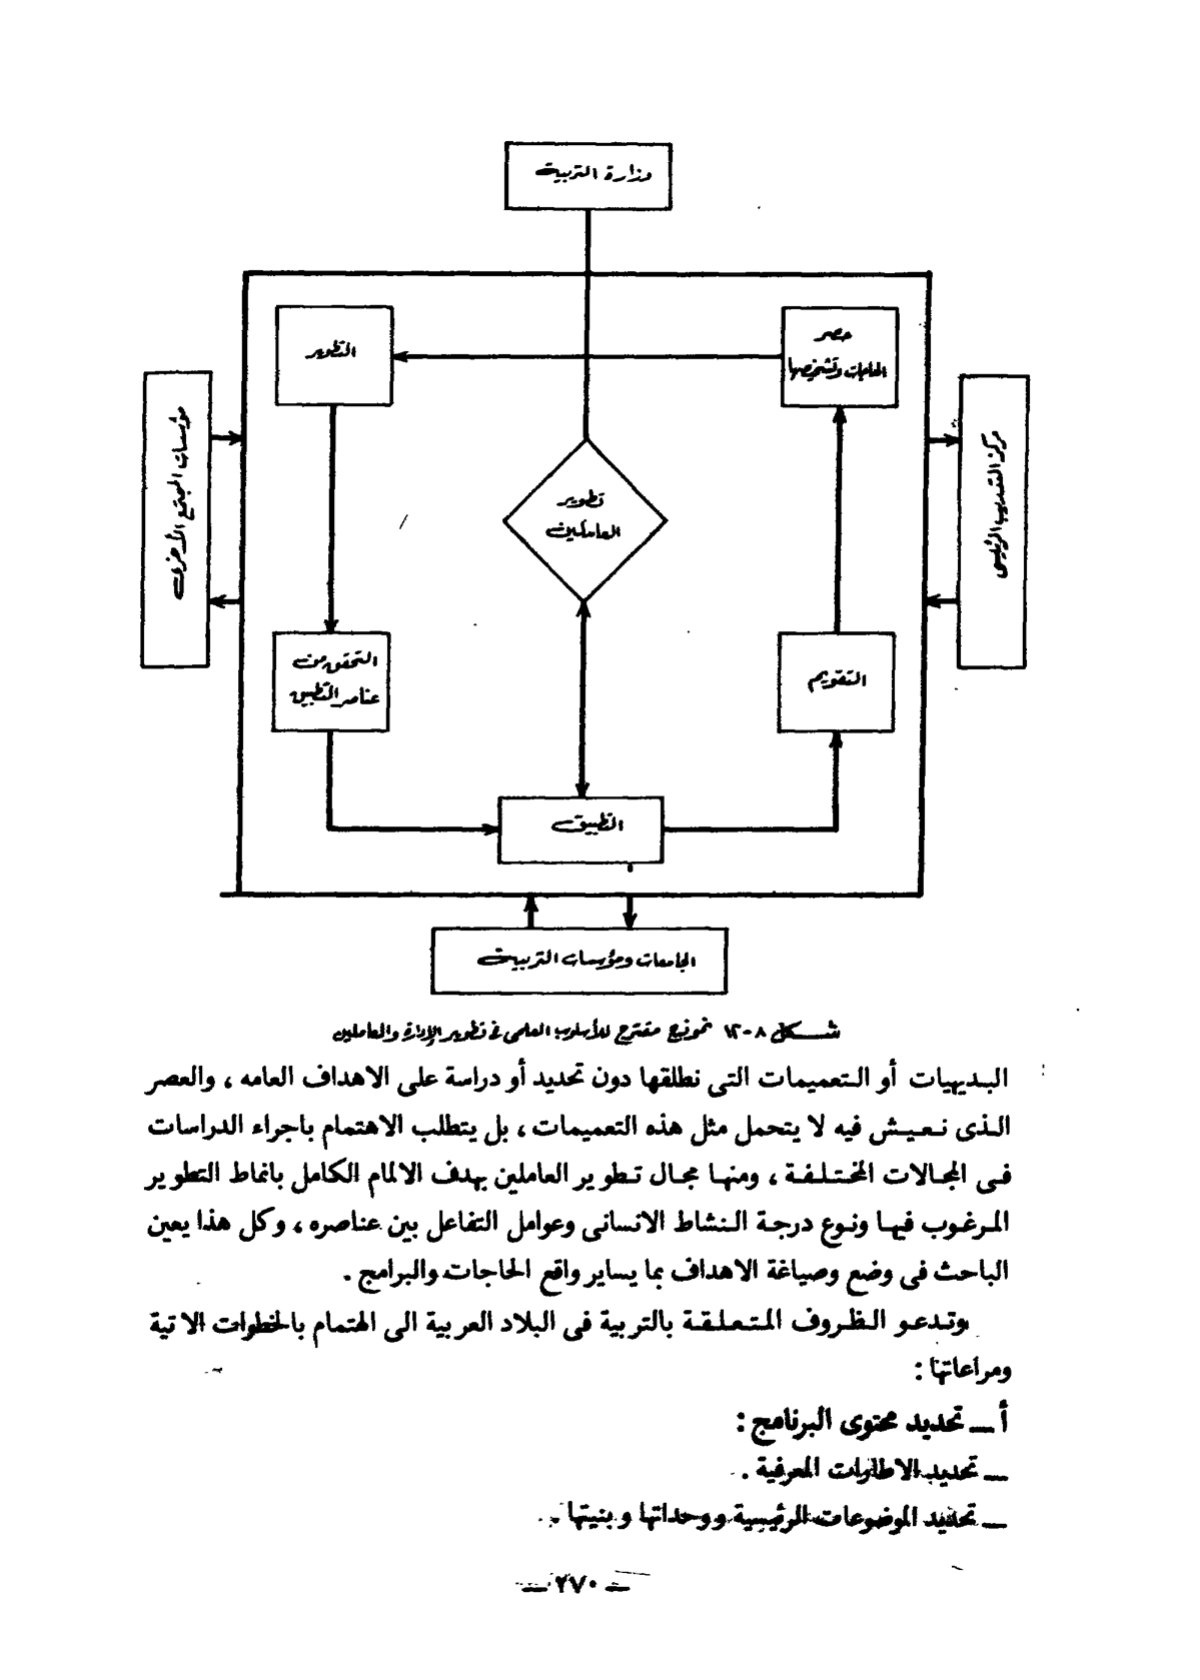 وزارة التربية
حصر
الحاجات وتشخيصها
التطوير
مركز التدريب الرئيسى
مؤسسات المجتمع الأخرى
تطوير
العاملين
التحقق من
عناصر التطبيق
التقويم
التطبيق
الجامعات ومؤسسات التربية
شكل ٨-١٢ نموذج مقترح للأسلوب العلمى فى تطوير الإدارة والعاملين
البديهيات أو التعميمات التى نطلقها دون تحديد أو دراسة على الاهداف العامه ، والعصر
الذى نعيش فيه لا يتحمل مثل هذه التعميمات ، بل يتطلب الاهتمام باجراء الدراسات
فى المجالات المختلفة ، ومنها مجال تطوير العاملين بهدف الالمام الكامل بانماط التطوير
المرغوب فيها ونوع درجة النشاط الانسانى وعوامل التفاعل بين عناصره ، وكل هذا يعين
الباحث فى وضع وصياغة الاهداف بما يساير واقع الحاجات والبرامج .
وتدعو الظروف المتعلقة بالتربية فى البلاد العربية الى الهتمام بالخطوات الاتية
ومراعاتها :
أ ــ تحديد محتوى البرنامج :
ــ تحديد الاطارات المعرفية .
ــ تحديد الموضوعات الرئيسية ووحداتها وبنيتها .
ــ ٢٧٠ ــ